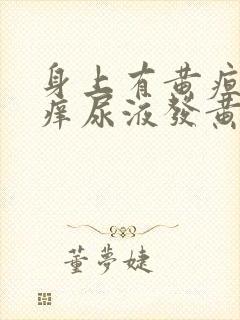 身上有黄疸
痒尿液發黄
董夢婕